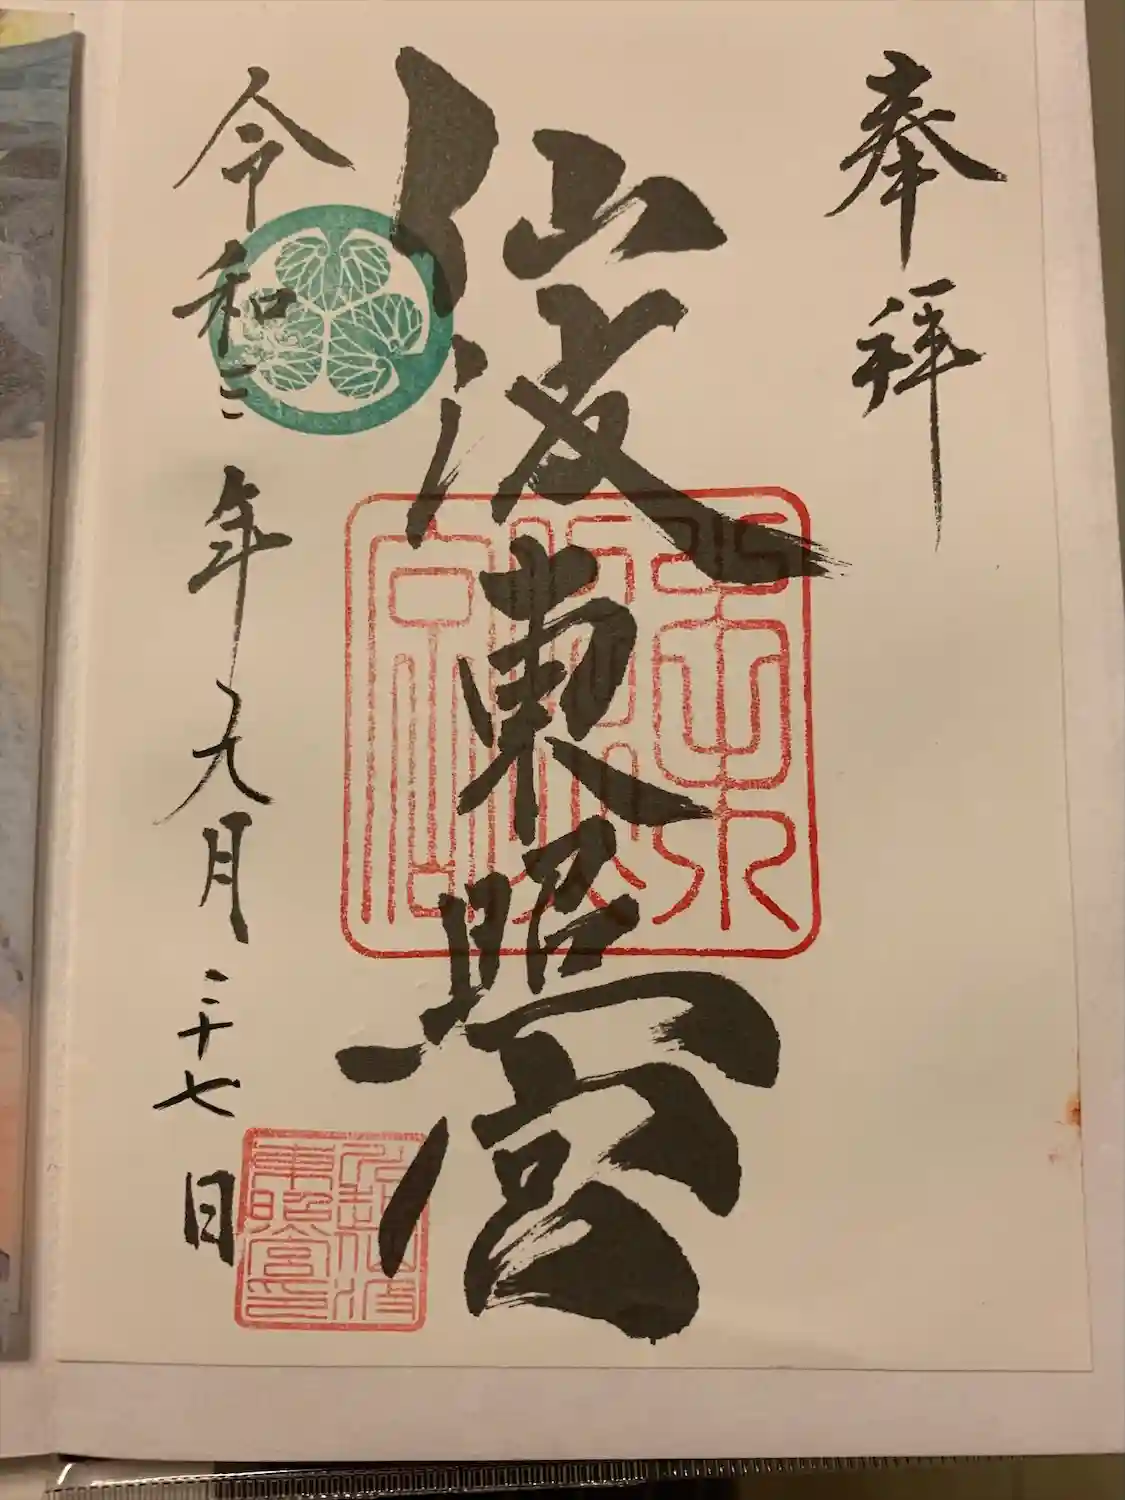 奉拝
仙波東照宮
令和二年九月二十七日
東照宮